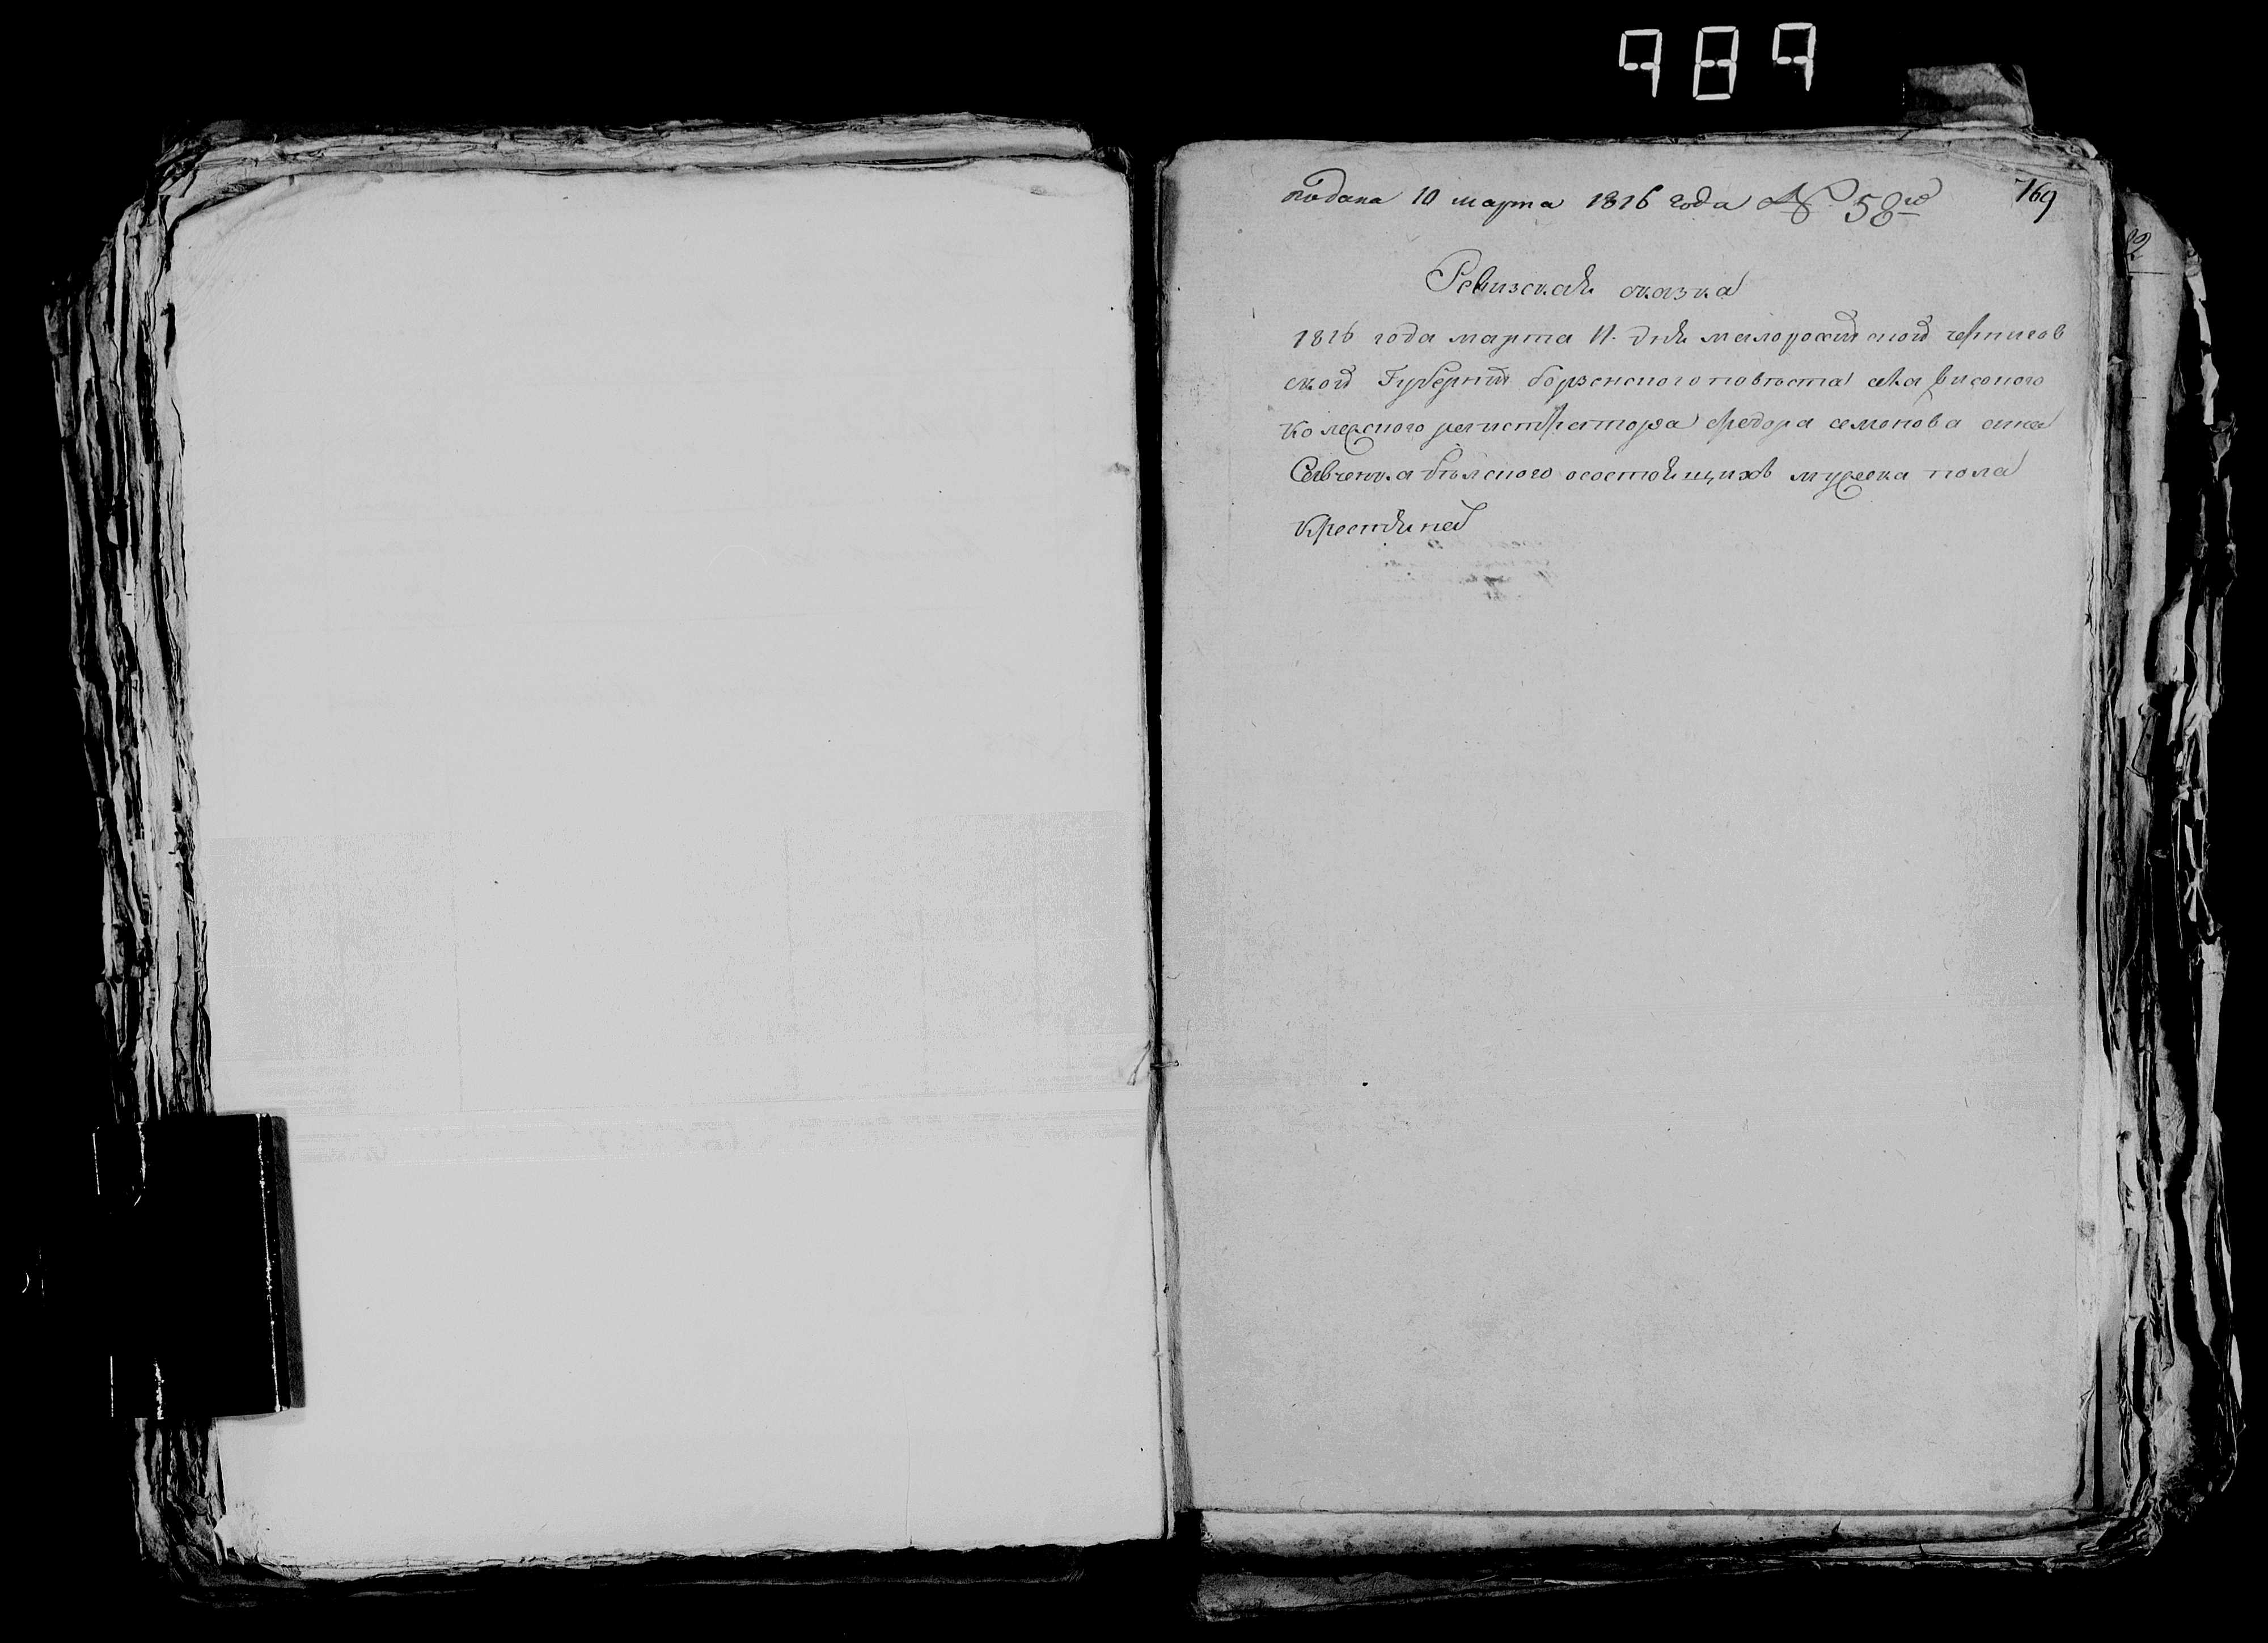 989
подана 10 марта 1816 года № 58го
769
Ревизская сказка
1816 года марта 11. дня малороссийской чернигов
ской Губернии борзенского повѣта села височого
колежского регистратора федора семенова сина
Савченка бѣлского осостоящихъ мужеска пола
крестянеи